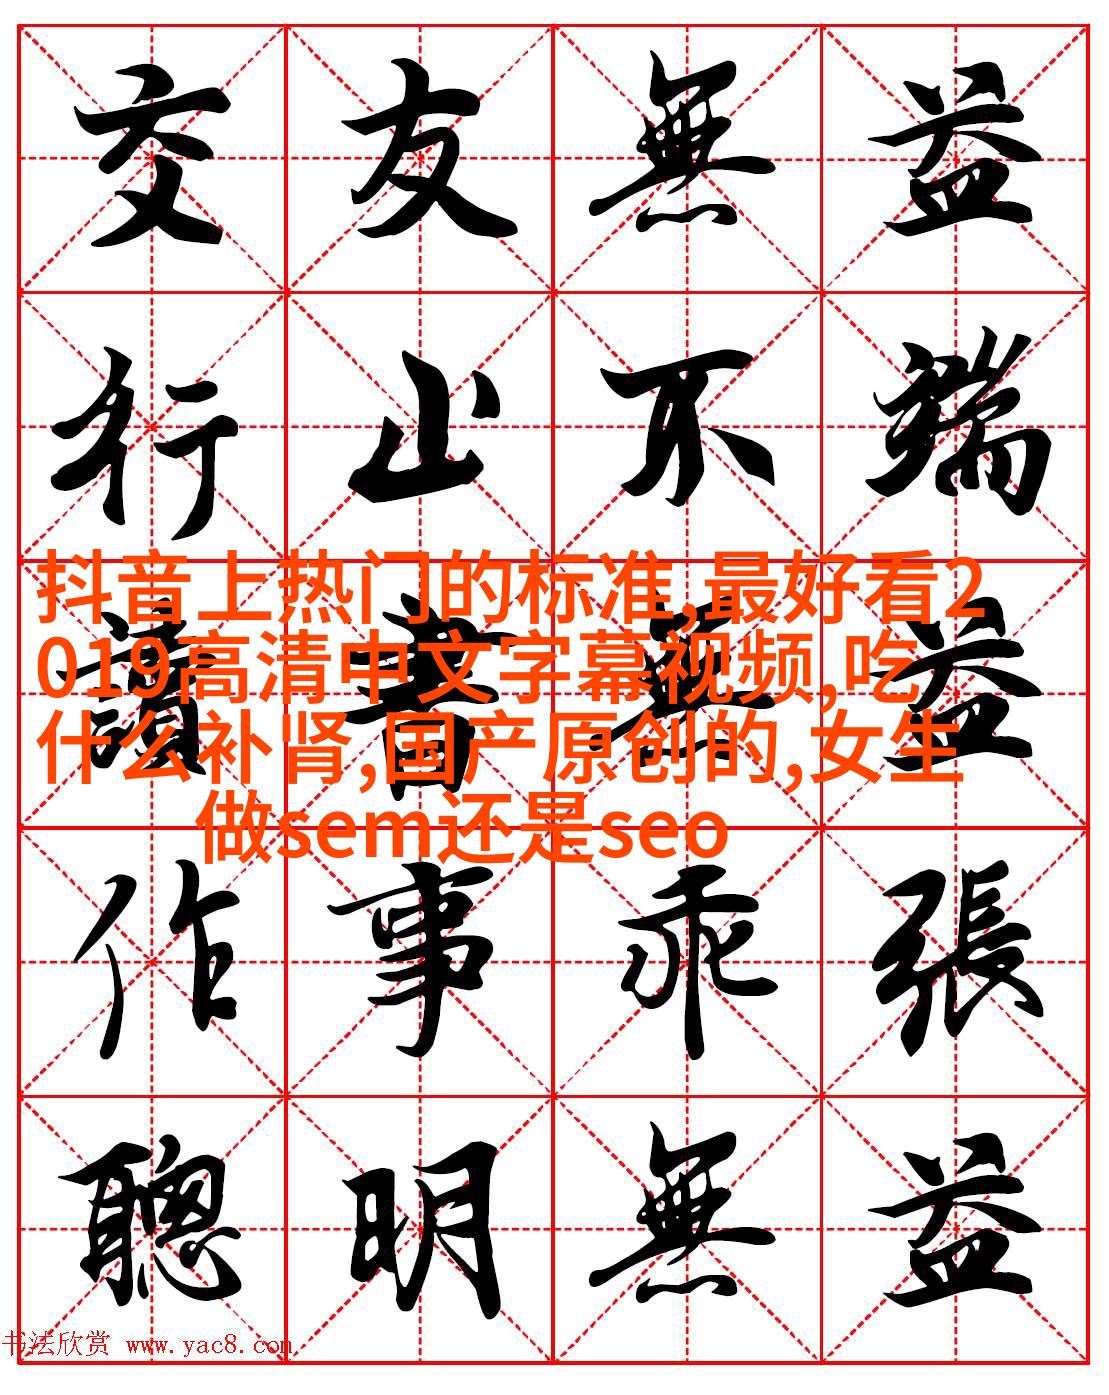 交友無益
行止不端
抖音上热门的标准,最好看2
019高清中文字幕视频,吃
什么补肾,国产原创的,女生
做sem还是seo
讀書無益
作事乖張
聰明無益
书法欣赏 www.yac8.com